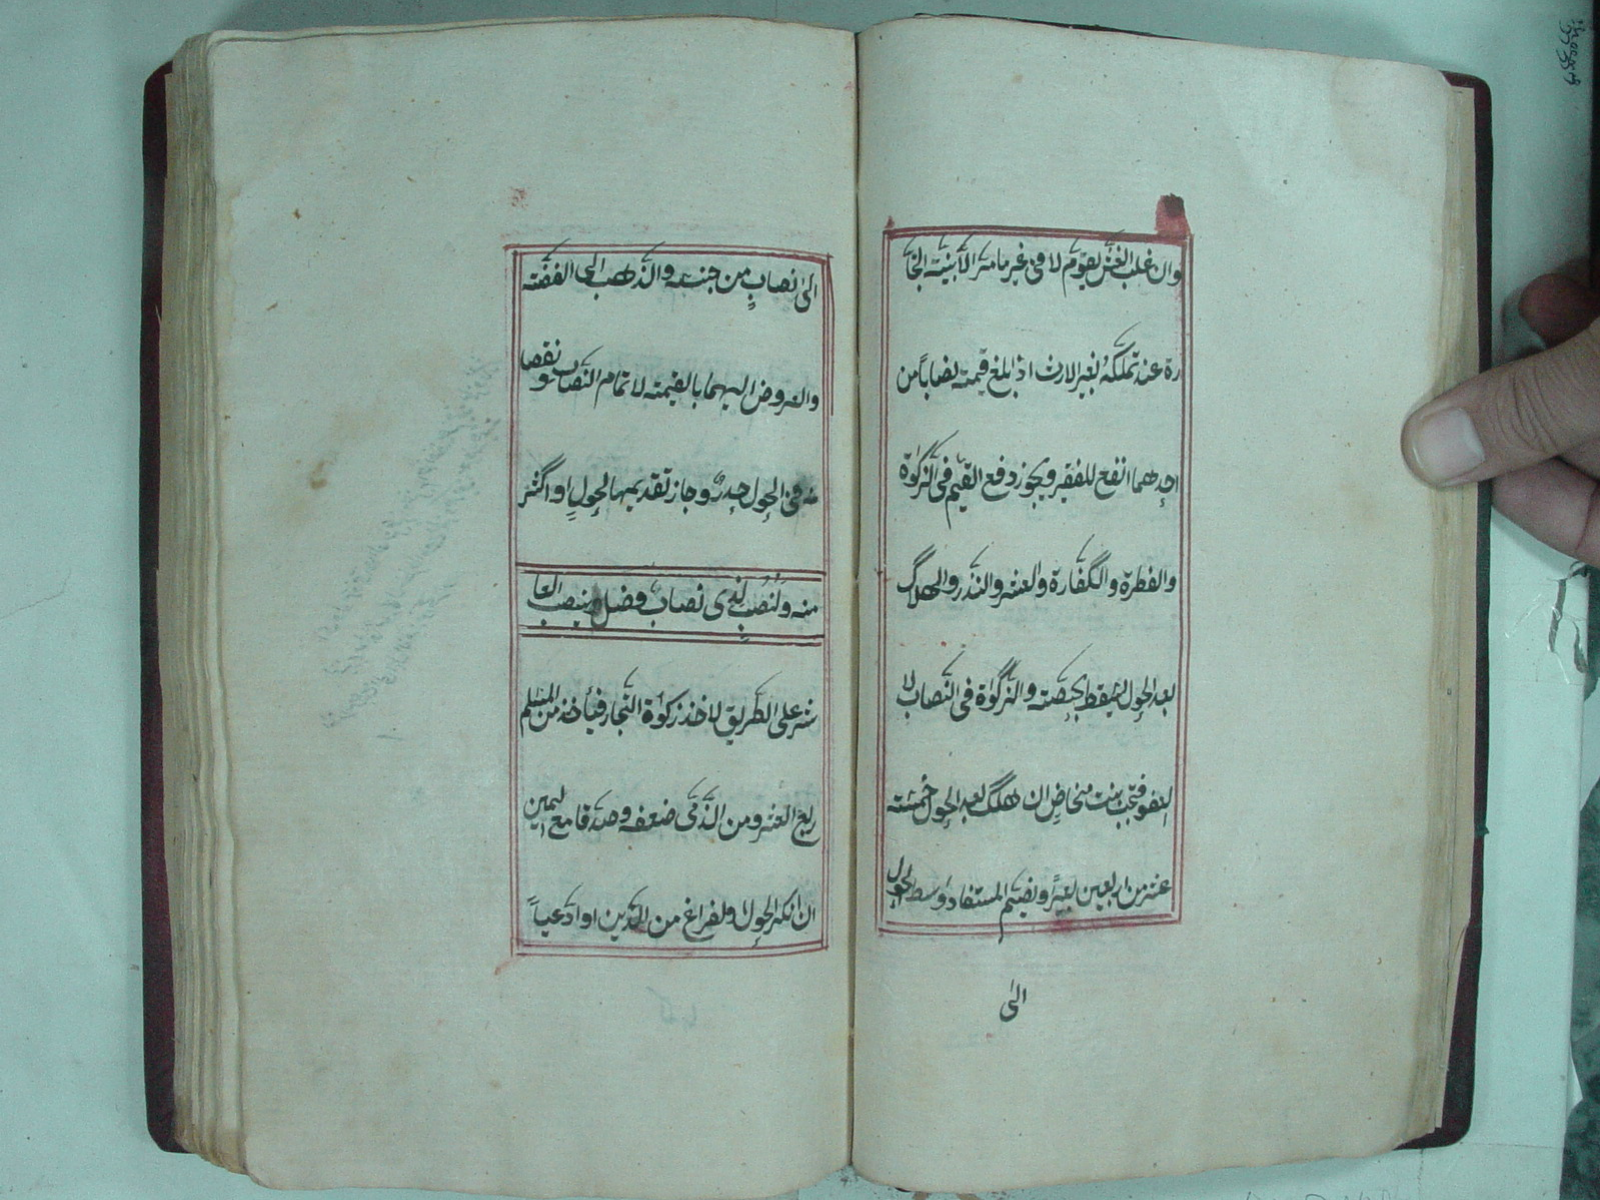 وان غلب الغش يقوم لا فى غير ما مر الا بنية التجا
رة عند تملكه بغير الارث اذا بلغ قيمته نصابا من
احدهما انفع للفقير ويجوز دفع القيم فى الزكوة
والفطرة والكفارة والعشر والنذر والهلاك
بعد الحول يسقط بحصته والزكوة فى النصاب لا
العفو فتجب بنت مخاض ان هلك بعد الحول خمسة
عشر من اربعين بعيرا ويضم المستفاد وسط الحول
الى
الى نصاب من جنسه والذهب الى الفضة
والعروض اليهما بالقيمة لاتمام النصاب ونقصا
نه فى الحول هدر وجاز تقديمها لحول او اكثر
منه ولنصب لذى نصاب فصل ينصب العا
شر على الطريق لاخذ زكوة التجار فيأخذ من المسلم
ربع العشر ومن الذمى ضعفه وصدقا مع اليمين
ان انكر الحول او لفراغ من الدين او ادعيا